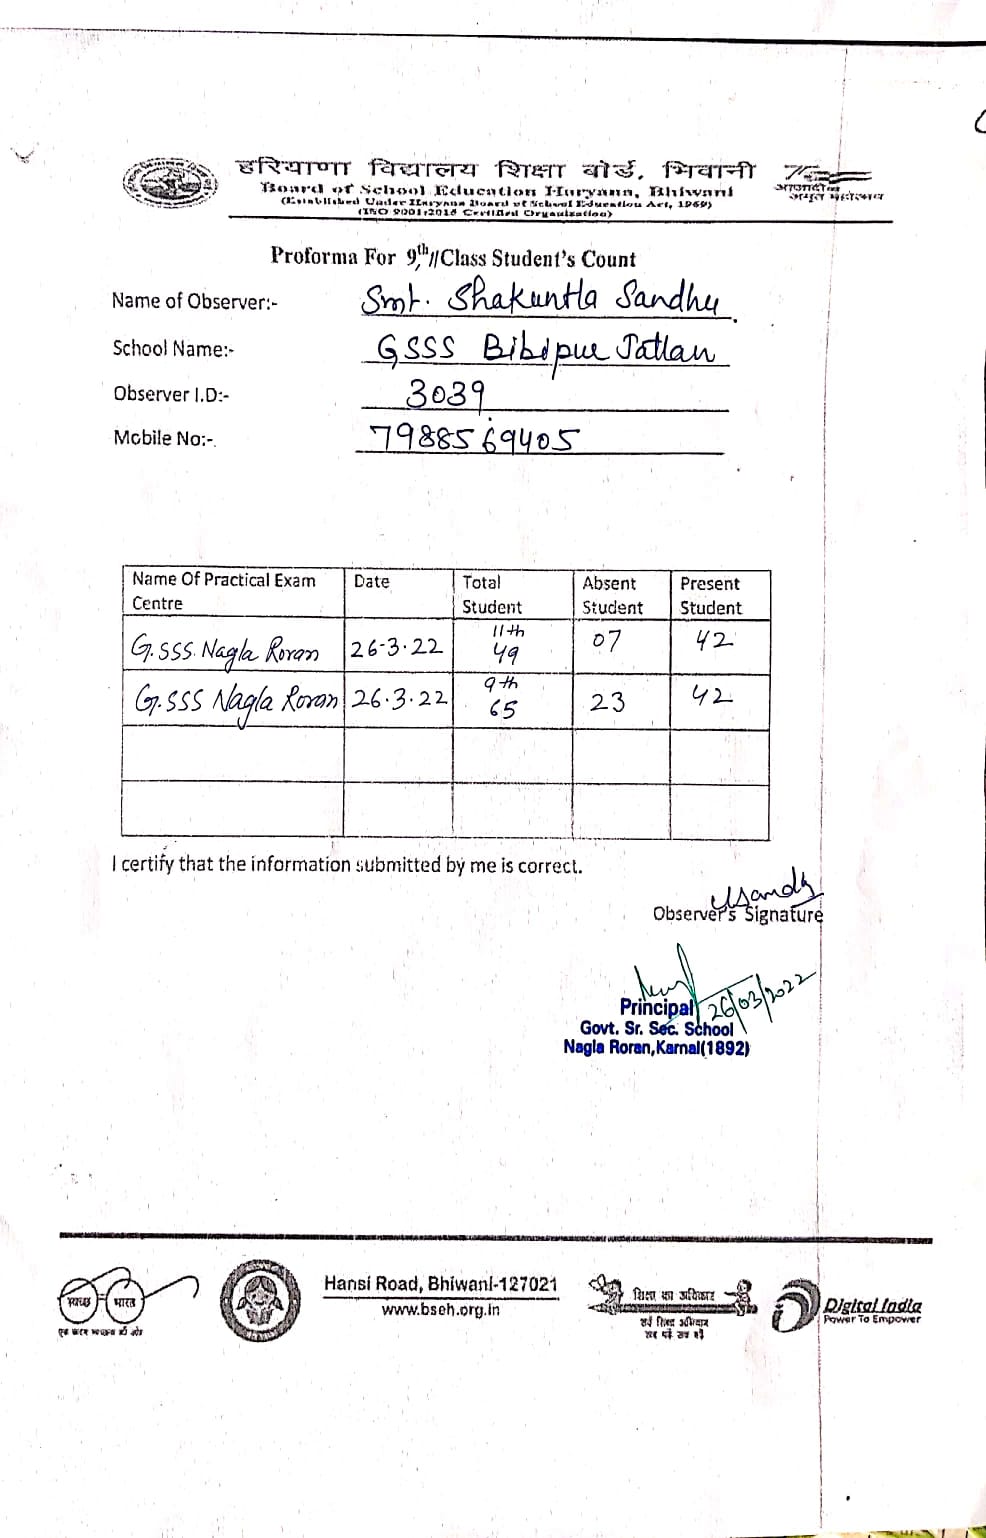 हरियाणा विद्यालय शिक्षा बोर्ड, भिवानी
Board of School Education Haryana, Bhiwani
(Established Under Haryana Board of School Education Act, 1969)
(ISO 9001:2015 Certified Organization)
75
आज़ादी का
अमृत महोत्सव
Proforma For 9th // Class Student's Count
Name of Observer:- Smt. Shakuntla Sandhu
School Name:- GSSS Bibipur Jatlan
Observer I.D:- 3039
Mobile No:- 7988569405
Name Of Practical Exam Centre Date Total Student Absent Student Present Student
G.SSS. Nagla Roran 26-3-22 11th 49 07 42
G.SSS Nagla Roran 26.3.22 9th 65 23 42
I certify that the information submitted by me is correct.
Observer's Signature
Principal 26/03/2022
Govt. Sr. Sec. School
Nagla Roran,Karnal(1892)
स्वच्छ भारत
एक कदम स्वच्छता की ओर
Hansi Road, Bhiwani-127021
www.bseh.org.in
शिक्षा का अधिकार
सर्व शिक्षा अभियान
सब पढ़ें सब बढ़ें
Digital India
Power To Empower